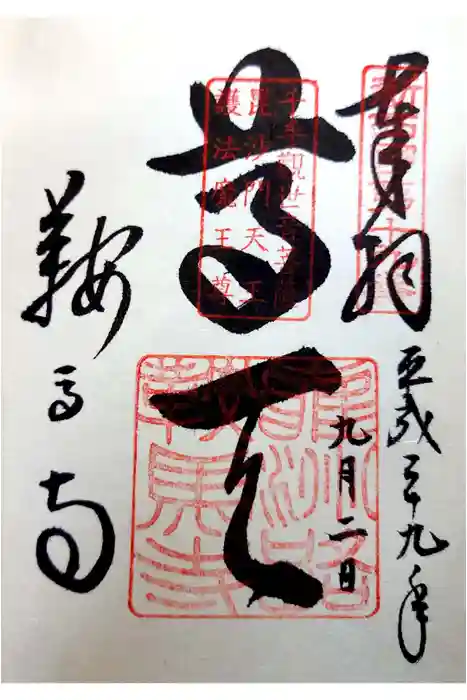 奉拝
平成二十九年
九月二日
千手觀世音菩薩
毘沙門天王
護法魔王尊
尊天
鞍馬寺